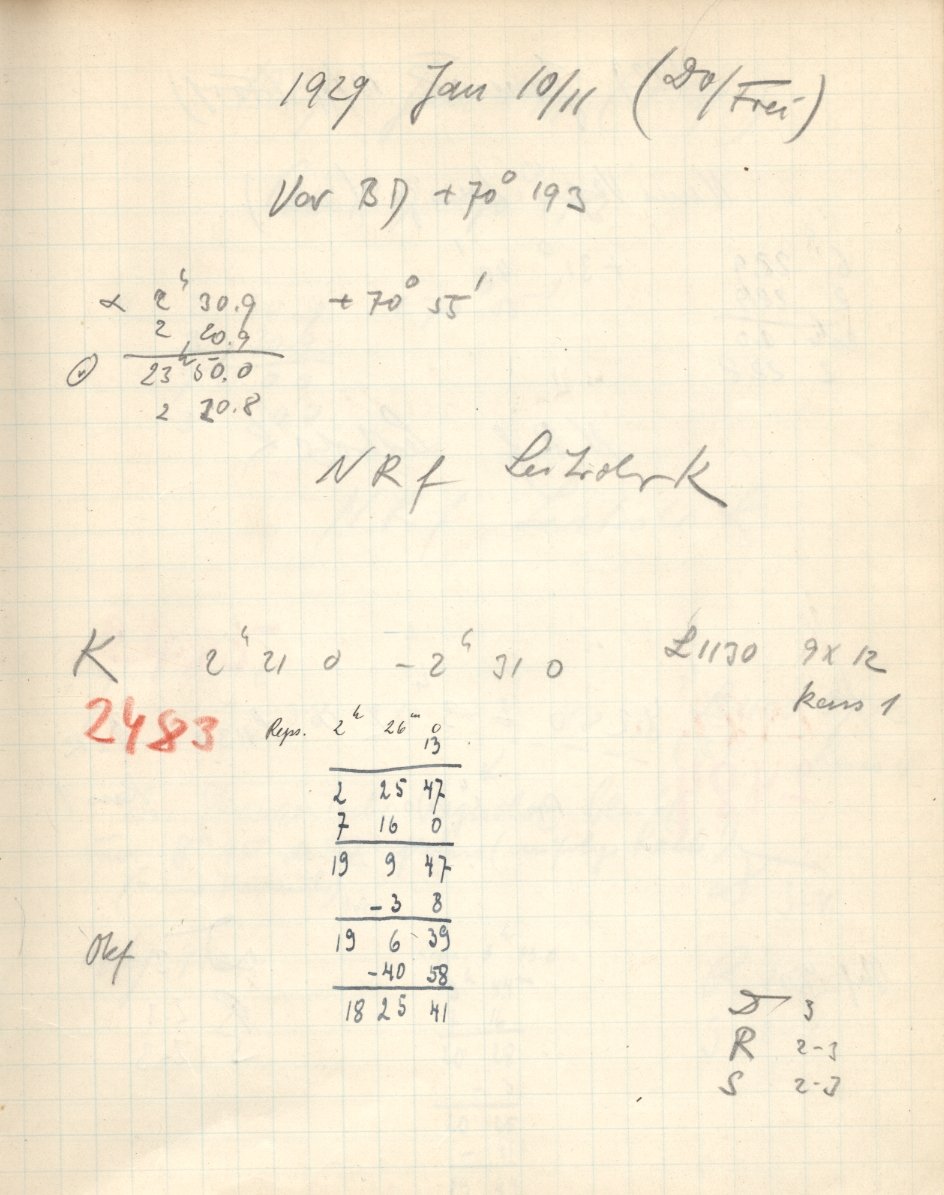 1929 Jan 10/11 (Do/Frei)
Var BD +70° 193
α 2ʰ 30.9 +70° 55'
2 20.9
23ʰ 50.0
2 20.8
NRf
K 2ʰ 21 0 - 2ʰ 31 0 L1130 9 x 12
2483 Kass 1
Reps. 2ʰ 26ᵐ 0
13
2 25 47
7 16 0
19 9 47
-3 8
Okf 19 6 39
-40 58
18 25 41
D 3
R 2-3
S 2-3